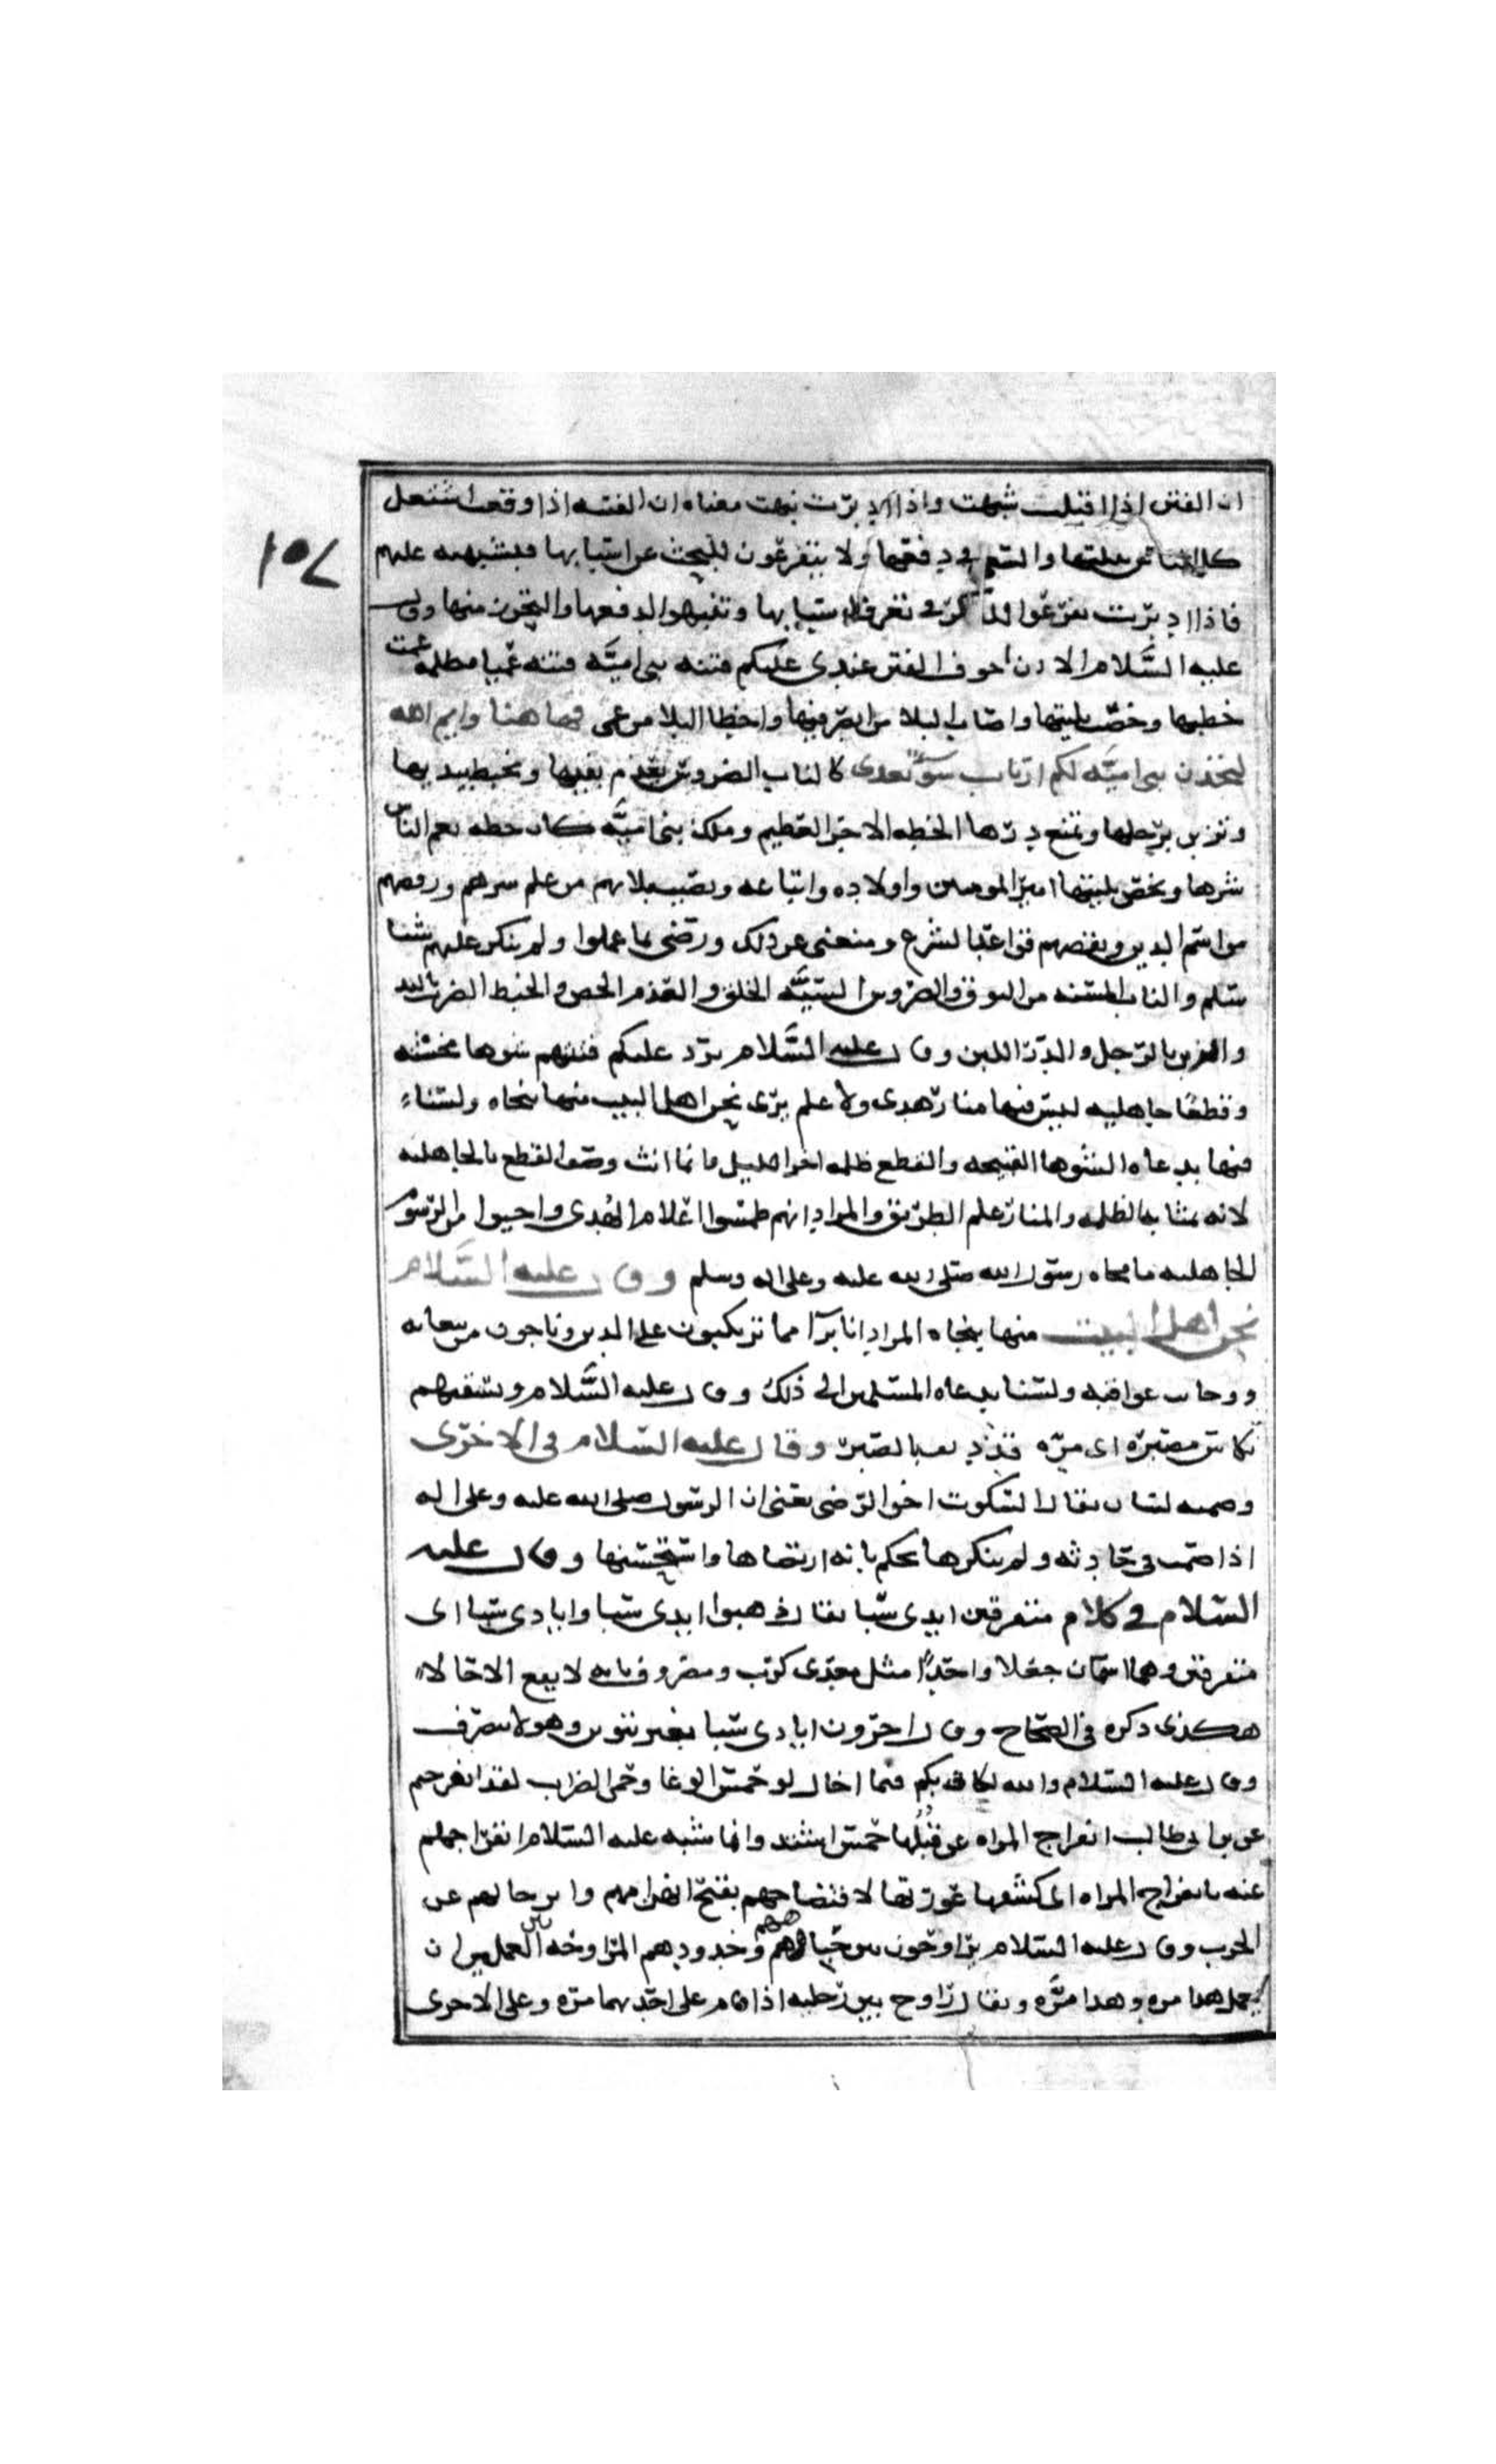 ان الفتن اذا اقبلت شبهت واذا ادبرت نبهت معناه ان الفتنه اذا وقعت اشتغل
كل انسان ببليتها والسعي في دفعها ولا يتفرغون للبحث عن اسبابها فيشتبهه عليهم
فاذا ادبرت تفرغوا في تعرف اسبابها وتنبهوا لدفعها والتحرز منها وقال
عليه السَّلام الا ان اخوف الفتن عندى عليكم فتنه بنى اميَّه فتنه عميا مظلمه عمت
خطتها وخصّت بليتها واصاب البلا من ابصر فيها واخطا البلا من عمى فيها هنا وايم الله
لتجدن بنى اميَّه لكم ارباب سوٍ بعدى كالناب الضروس تعذم بفيها وتخبط بيديها
وتزبن برجلها وتمنع درّها الخطه الامر العظيم وملك بنى اميَّه كان خطه يعم الناس
شرها ويخص بليتها امير المومنين واولاده واتباعه ويصيب بلاهم من علم سرهم ورفضهم
مراسم الدين ونقضهم قواعد الشرع ومنعنى عن ذلك ورضى بما عملوا ولم ينكر عليهم شيئا
سلم والناب المسنه من النوق والضروس السيَّه الخلق والعذم العض والخبط الضرب باليد
والزبن بالرّجل والدّرّ اللبن وقال عليه السَّلام ترد عليكم فتنهم شوها مخشيه
وقطعًا جاهليه ليس فيها منار هدى ولا علم يرى نحن اهل البيت منها بنجاه ولسناءِ
فيها بدعاه الشوها القبيحه والقطع ظلمه اخر الليل وانما انث وصف القطع بالجاهليه
لانه بمثابه الظلمه والمنار علم الطريق والمراد انهم طمسوا اعلام الهُدى واحيوا من الرسوم
الجاهليه ما محاه رسول الله صلى الله عليه وعلى اله وسلم وقال عليه السَّلام
نحن اهل البيت منها بنجاه المراد انا برآ مما ترتكبون على الدين وناجون من تبعاته
ووخامت عواقبه ولسنا بدعاه المسلمين الى ذلك وقال عليه السَّلام ويسقيهم
بكاس مصبّره اى مرّه قد زيد فيها الصّبر وقال عليه السّلام فى الاخرى
وصمته لسان يقال السكوت اخو الرّضى يعنى ان الرسول صلى الله عليه وعلى اله
اذا صمت فى حادثه ولم ينكرها يحكم بانه ارتضاها واستحسنها وقال عليه
السّلام فى كلام متفرقين ايدى سبا يقال ذهبوا ايدى سبا وايادى سبا اى
متفرقين وهما اسمان جعلا واحدًا مثل معدى كرب ومصروف لانه لا يقع الا حالا
هكذى ذكره فى الصّحاح وقال اخرون ايادى سبا بغير تنوين وهو لا ينصرف
وقال عليه السّلام والله لكانى بكم فيما اخال لو حمس الوغا وحمى الضراب لقد انفرجتم
عن بن ابى طالب انفراج المراه عن قُبُلها حمس اشتد وانما شبه عليه السّلام انفراجهم
عنه بانفراج المراه اى كشفها عورتها لافتضاحهم بقبح انهزامهم وارتحالهم عن
الحرب وقال عليه السّلام يراوحون بين جباههم وخدودهم المراوحه بين العملين ان
يعمل هذا مره وهذا مرَّه ويقال راوح بين رجليه اذا قام على احديهما مرّه وعلى الاخرى